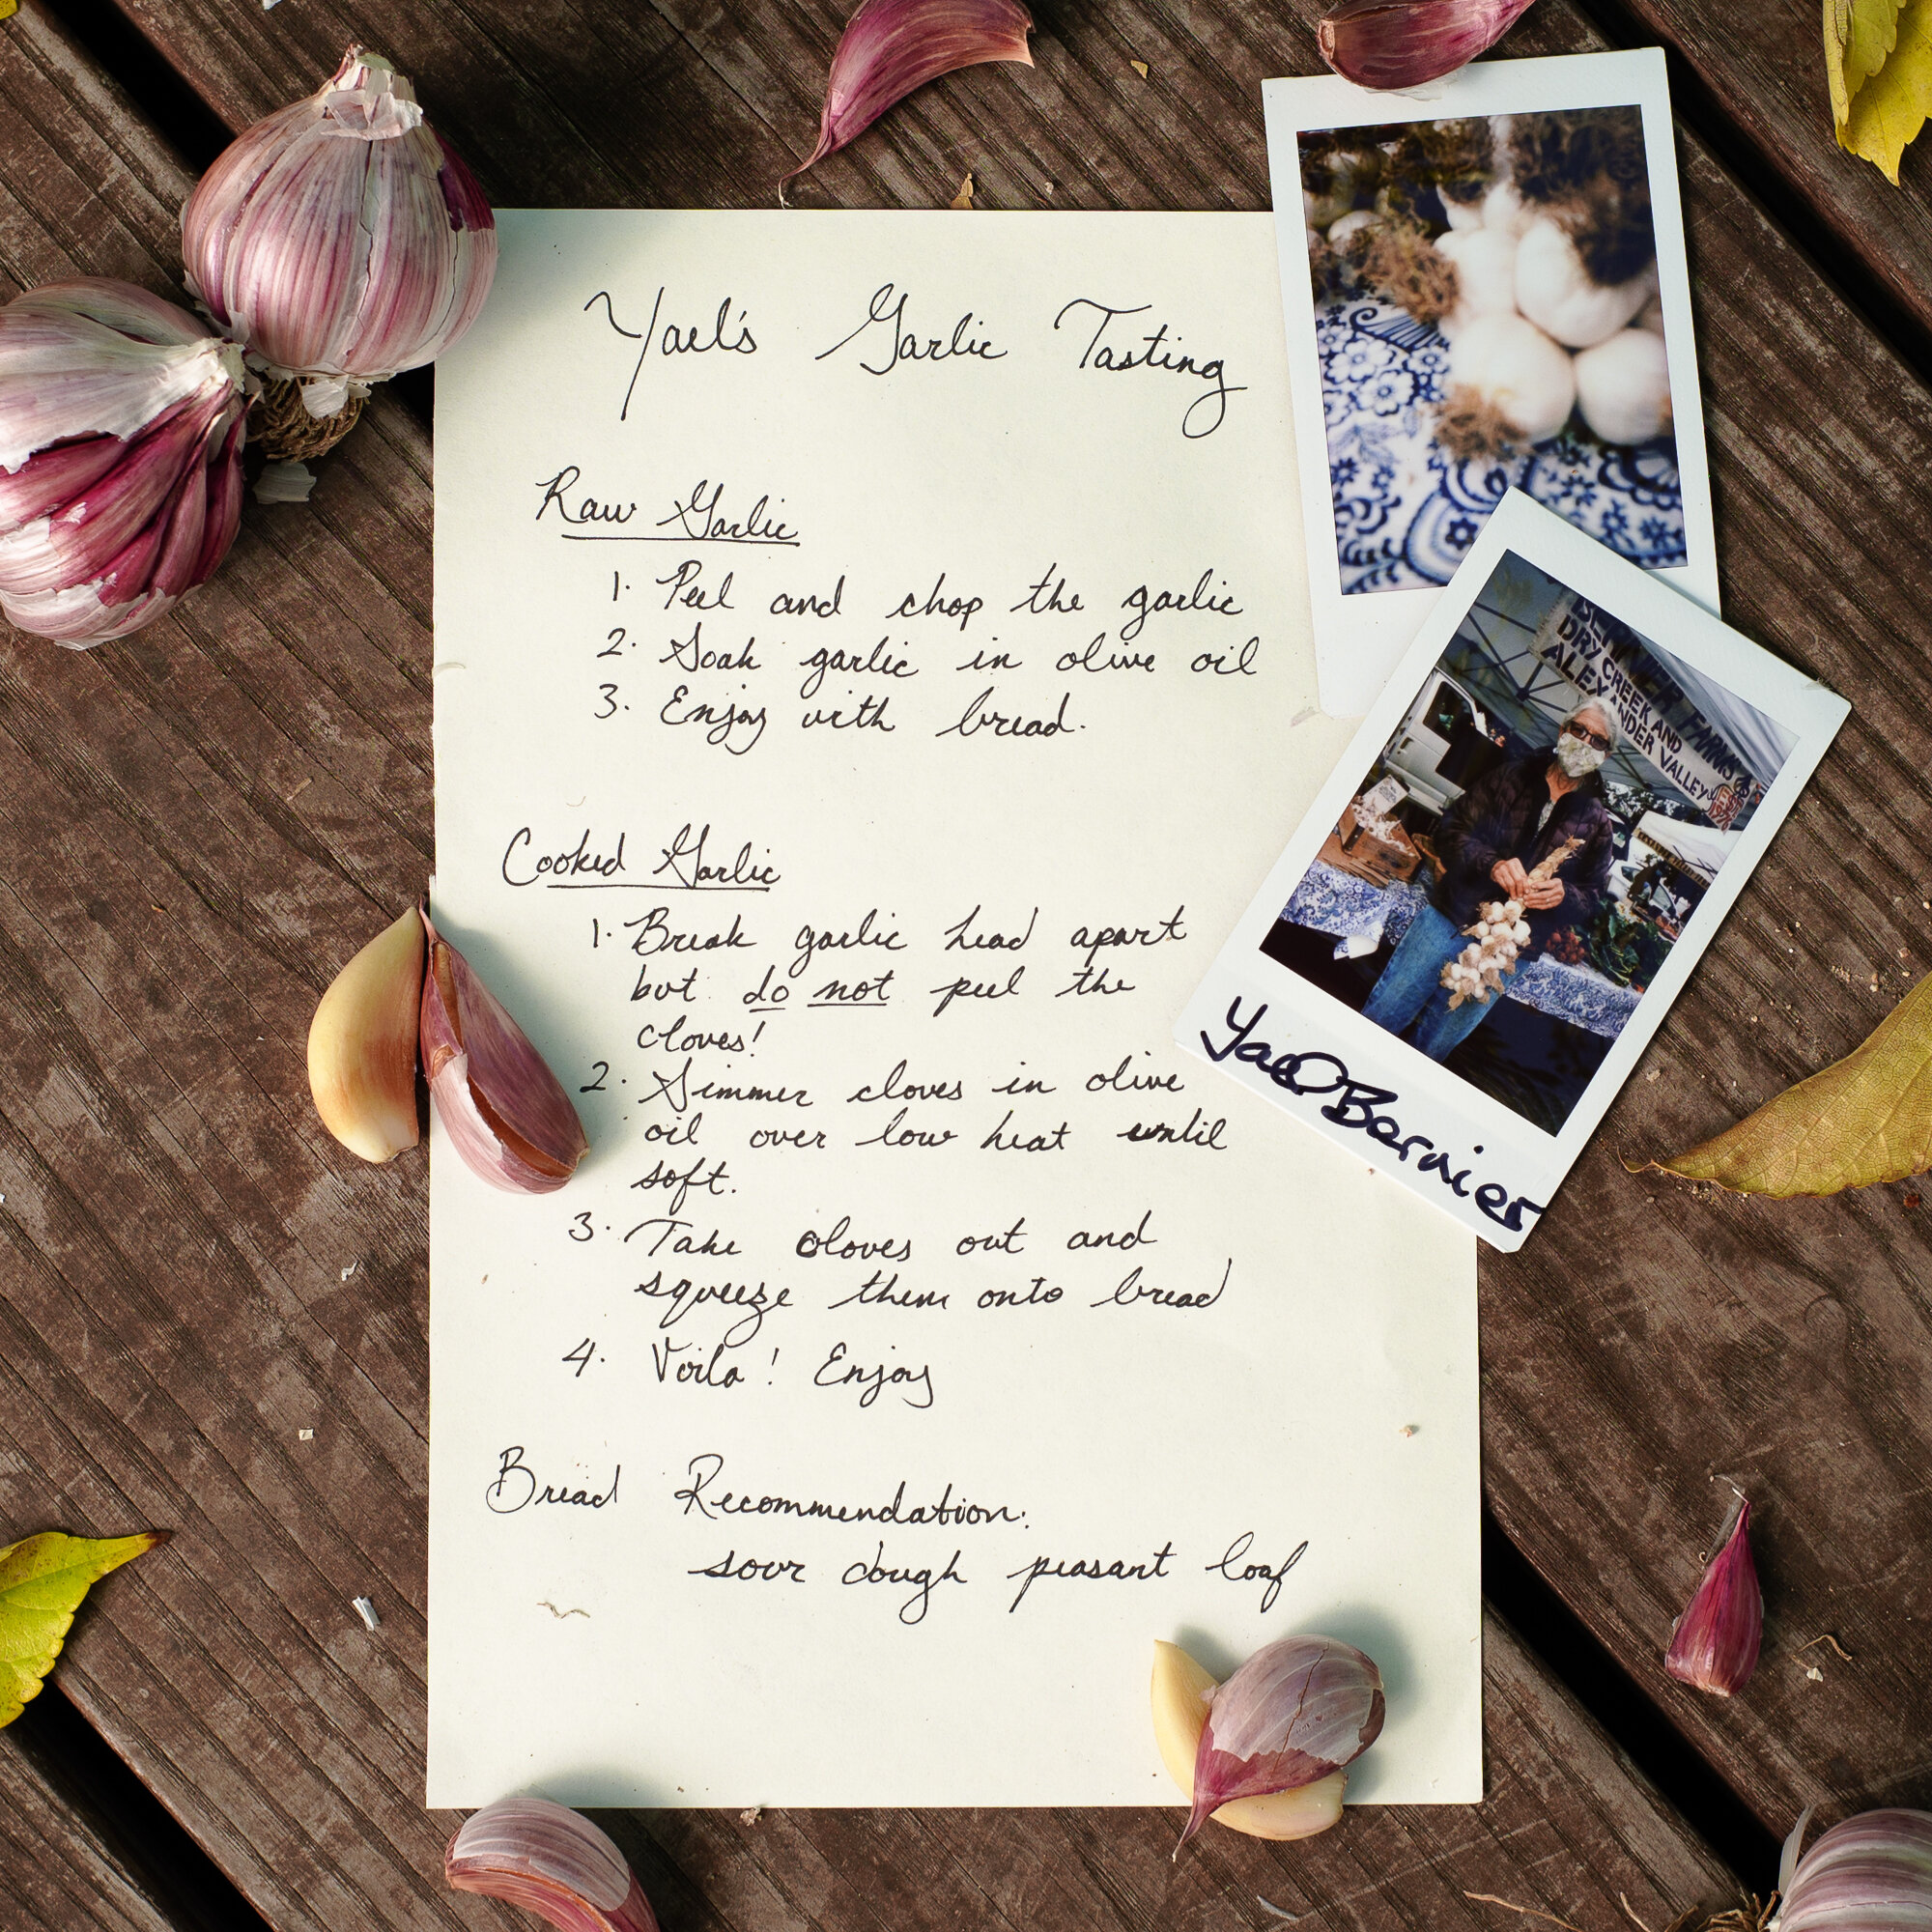 Yael's Garlic Tasting
Raw Garlic
1. Peel and chop the garlic
2. Soak garlic in olive oil
3. Enjoy with bread.
Cooked Garlic
1. Break garlic head apart
but do not peel the
cloves!
2. Simmer cloves in olive
oil over low heat until
soft.
3. Take cloves out and
squeeze them onto bread
4. Voila! Enjoy
Bread Recommendation:
sour dough peasant loaf
BERNIER FARMS
DRY CREEK AND
ALEXANDER VALLEY
Yael Bernier